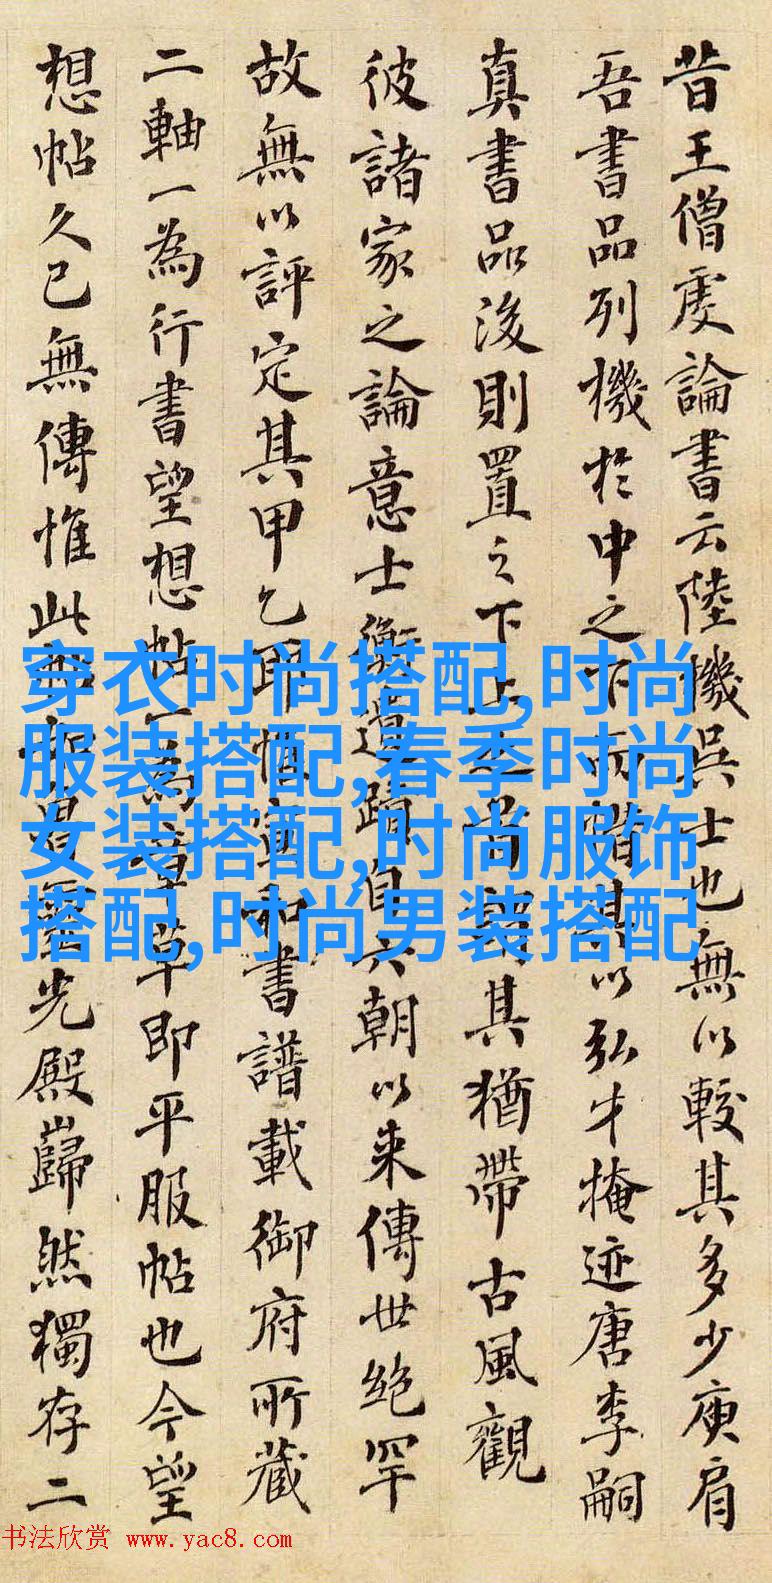 昔王僧虔論書云陸機吳士也無以較其多少庾肩
吾書品列機於中之下而惜其以弘才掩迹唐李嗣
真書品後則置之下上之尚其猶帶古風觀
彼諸家之論意士衡遺蹟自六朝以来傳世絶罕
故無以評定其甲乙耶惟宣和書譜載御府所蔵
二軸一為行書望想帖一為章草即平服帖也今望
想帖久已無傳惟此光殿巋然獨存二
穿衣时尚搭配,时尚
服装搭配,春季时尚
女装搭配,时尚服饰
搭配,时尚男装搭配
书法欣赏 www.yac8.com